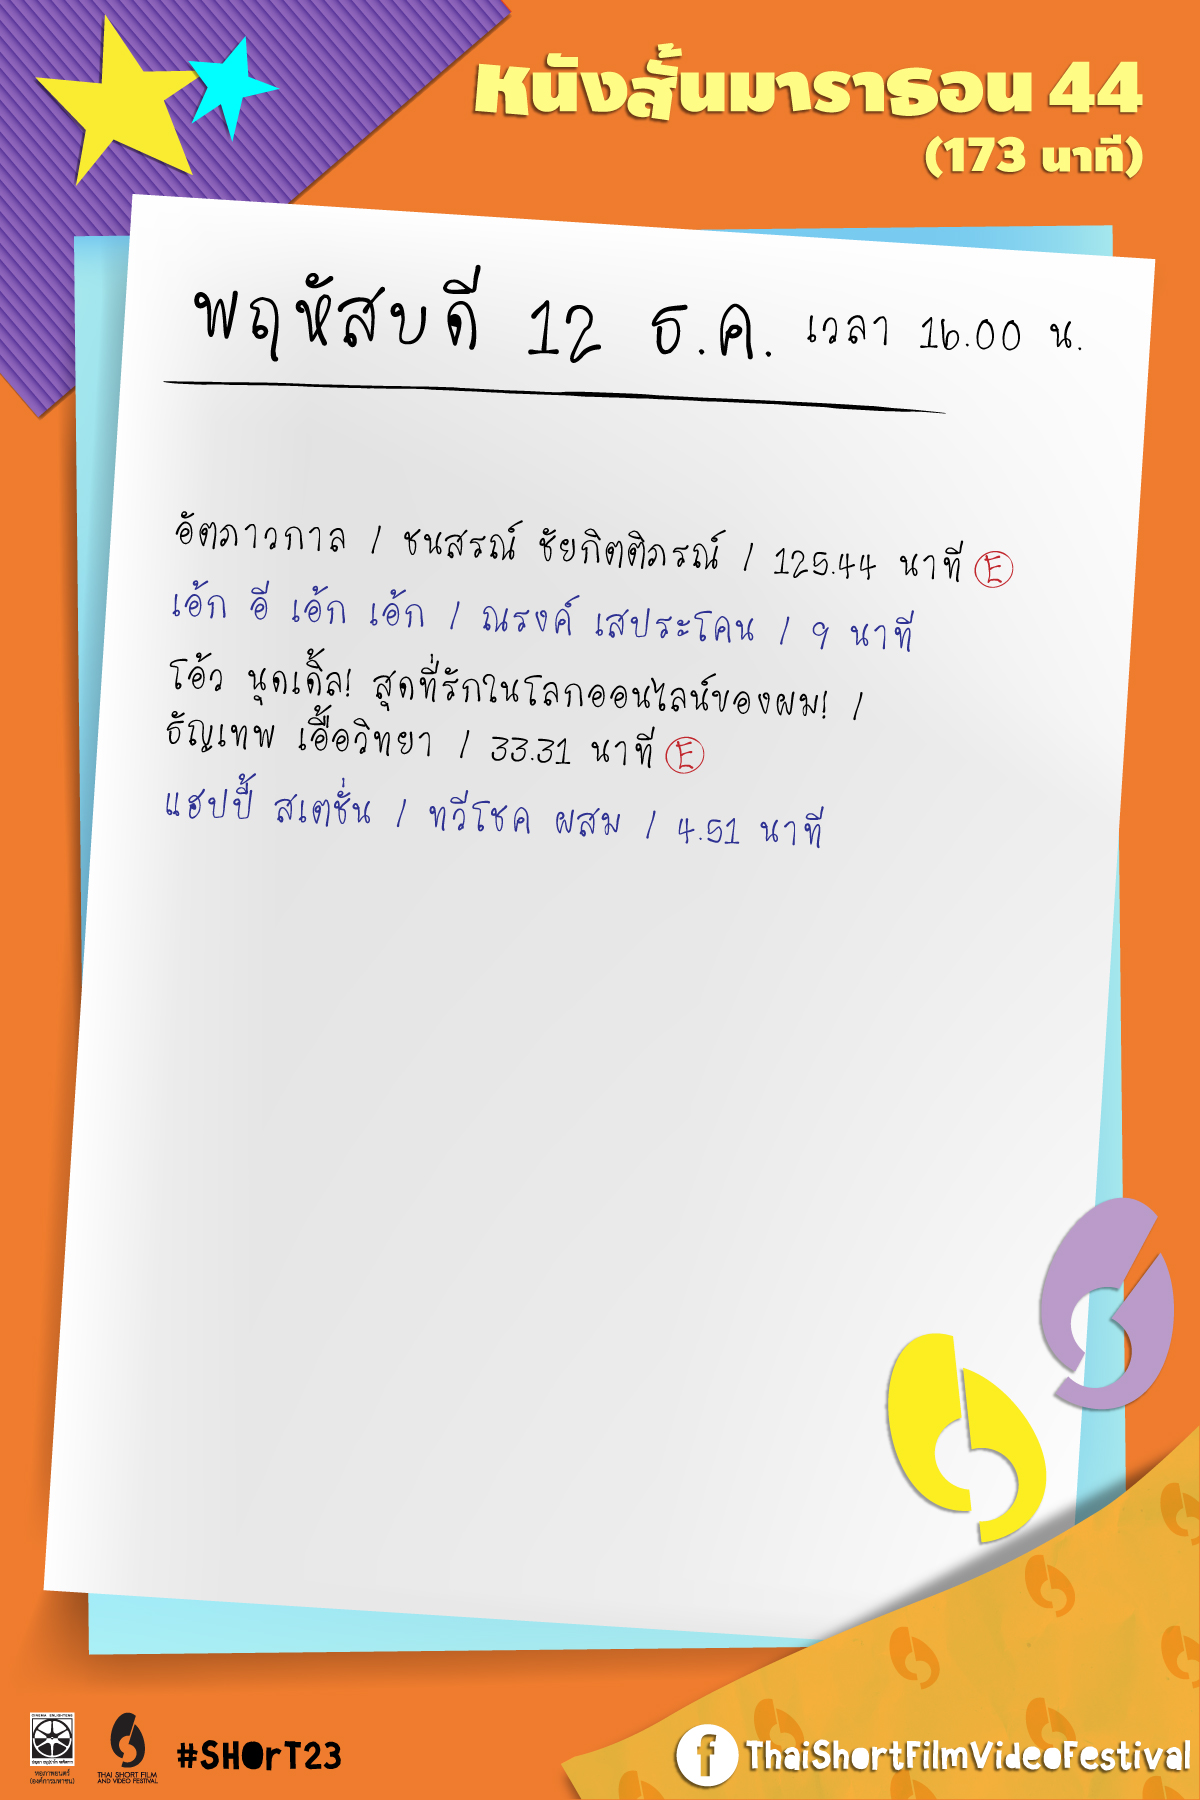 หนังสั้นมาราธอน 44
(173 นาที)
พฤหัสบดี 12 ธ.ค. เวลา 16.00 น.
อัตภาวกาล / ชนสรณ์ ชัยกิตติภรณ์ / 125.44 นาที E
เอ้ก อี เอ้ก เอ้ก / ณรงค์ เสประะโคน / 9 นาที
โอ้ว นุดเดิ้ล! สุดที่รักในโลกออนไลน์ของผม! /
ธัญเทพ เอื้อวิทยา / 33.31 นาที E
แฮปปี้ สเตชั่น / ทวีโชค ผสม / 4.51 นาที
CINEMA ENLIGHTENS
หอภาพยนตร์
(องค์การมหาชน)
THAI SHORT FILM
AND VIDEO FESTIVAL
#SHOrT23
f ThaiShortFilmVideoFestival